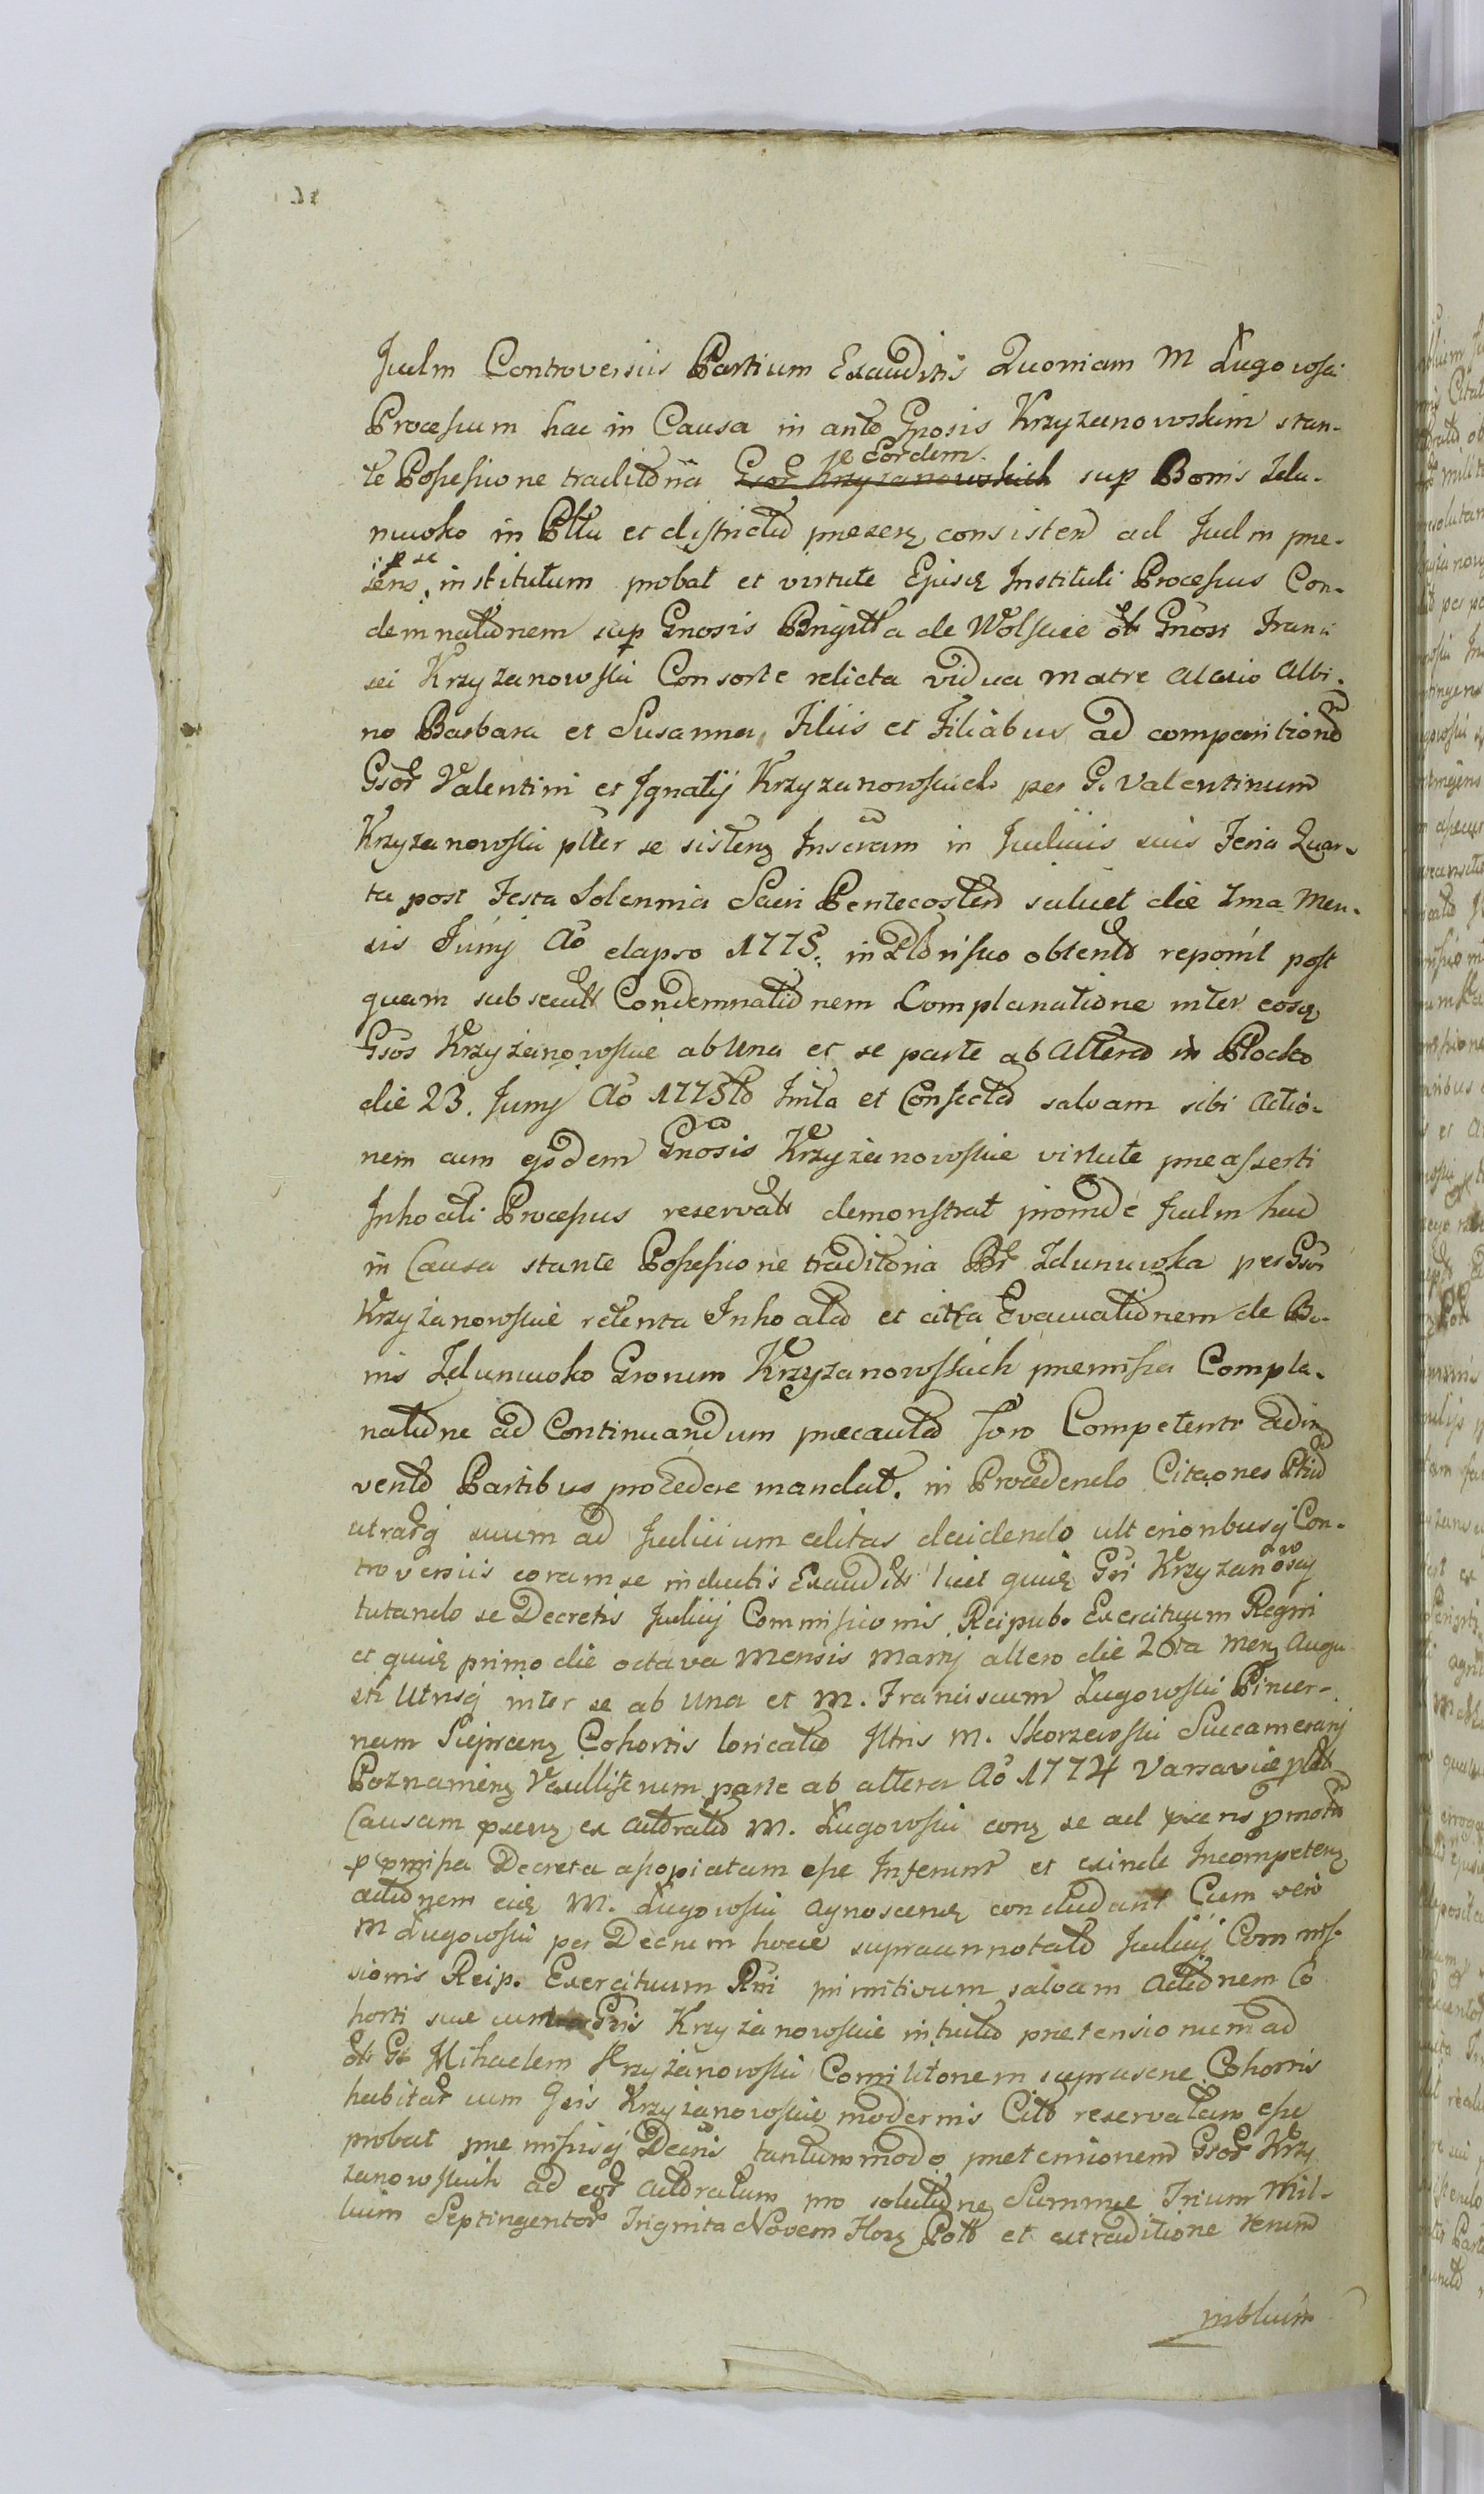 Judm Controversiis Partium Exauditis Quoniam M Ługowski
Processum hac in Causa in anto Gnosis Krzyzanowskim stan-
te Possessione traditoria Gsor Krzyzanowskich sup Bonis Zdu-
se Eordem
nuwsko in Pttu et districtu presen consisten ad Judm pre-
sens, p se institutum probat et virtute Ejusq Instituti Processus Con-
demnationem sup Gnosis Brigitta de Wolskie ol Gnosi Franci
sci Krzyzanowski Consorte relicta vidua matre Alexio Albi-
no Barbara et Susanna, Filiis et Filiabus ad comparitiond
Gsor Valentini et Ignatij Krzyzanowskich per G. Valentinum
Krzyzanowski plter se sisten in Judiciis suis Feria Quar-
ta post Festa Solennia Sacri Pentecosten scilicet die 7ma Men-
sis Junij Ao elapso 1775. obtent reponit post
quam subsecutt Condemnationem Complanatione inter eosq
Gsos Krzyzanowskie ab una et se parte ab Altera in Plocko
die 23. Junij Ao 1775to Inita et Confecta salvam sibi Actio-
nem cum ejsdem Gnosis Krzyzanowskie virtute preasserti
Inhoati Processus reservatt demonstrat proinde Judm hac
in Causa stante Possessione traditoria Br Zdunuwska per Gsos
Krzyzanowskie retenta Inhoata et citra Evacuationem de Bo-
nis Zdunuwsko Gronum Krzyzanowskich premissa Compla-
natione ad Continuandum precauta foro Competenti adin
vento Partibus procedere mandat. in Procedendo Citaones Ptiu
utrarq suum ad Judicium editas decidendo ulterioribusq Con-
troversiis coram se inductis Exauditt licet quiq Gsi Krzyzanoscy
tutando se Decretis Judicij Commissionis Reipub. Exercituum Regni
et quiq primo die octava Mensis Martij altero die 26ta Men Augu
sti Utrisq inter se ab Una et M. Franciscum Ługowski Pincer-
nam Cohortis loricato Iltris M. Skorzewski Succamerarij
Poznamien Vexilliferum parte ab altera Ao 1774 Varsavie plat
Causam presen ex Actoratu M. Ługowski con se ad psens pmota
p pmissa Decreta assopiatam esse Inferunt et exinde Incompeten
actionem eiq M. Ługowski agnoscenq concludant Cum vero
M Ługowski per Decrum hocce supraannotato Judicij Commis-
sionis Reip. Exercituum Rni primitivum salvam Actionem Co
horti sue cum Gsis Krzyzanowskie intuitu pretensionum ad
ol Gt Mihaelem Krzyzanowski Comilitonem suprascne Cohortis
habitar cum Gsis Krzyzanowskie modernis Citt reservatam esse
probat premissisq Decris tantummodo pretensionem Gsor Krzy
zanowskich ad eor Actoratum pro solutione Summe Trium Mil-
lium Septingentor Triginta Novem Flor Pott et extraditione rerum
mobilium